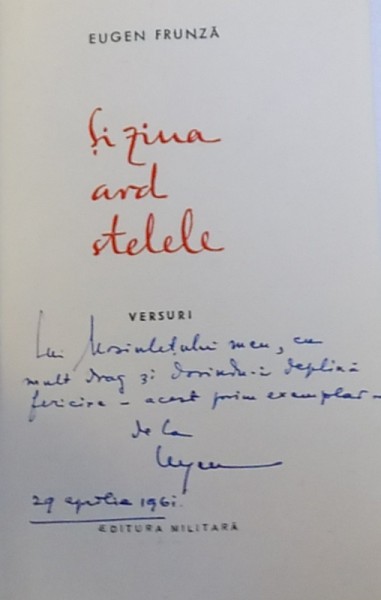 EUGEN FRUNZĂ
Și ziua
ard
stelele
VERSURI
Lui meu, cu
mult drag și dorindu-i deplină
fericire – acest prim exemplar –
de la
29 aprilie 1961.
EDITURA MILITARĂ